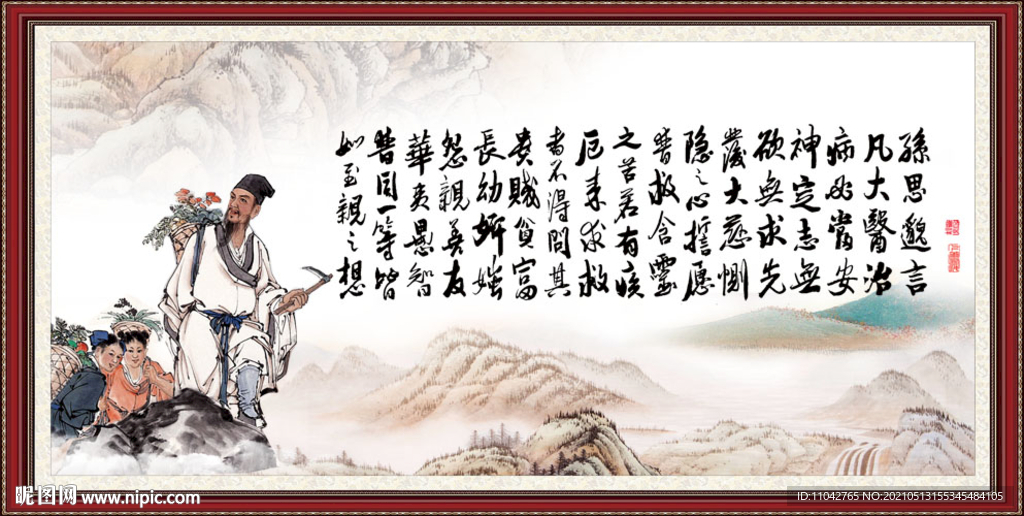 孫思邈言
凡大醫治
病必當安
神定志無
欲無求先
發大慈惻
隐之心誓愿
普救含靈
之苦若有疾
厄来求救
者不得問其
貴賤貧富
長幼妍媸
怨親善友
華夷愚智
普同一等皆
如至親之想
昵图网 www.nipic.com
ID:11042765 NO:20210513155345484105